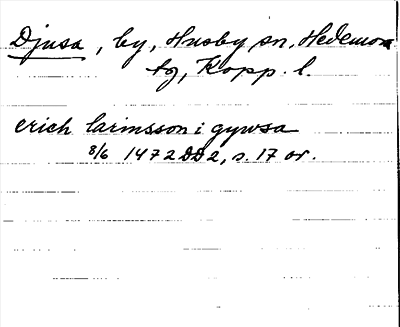 Djusa, by, Husby sn, Hedemora
tg, Kopp. l.
erich larinsson i gywsa
8/6 1472 DD2, s. 17 or.